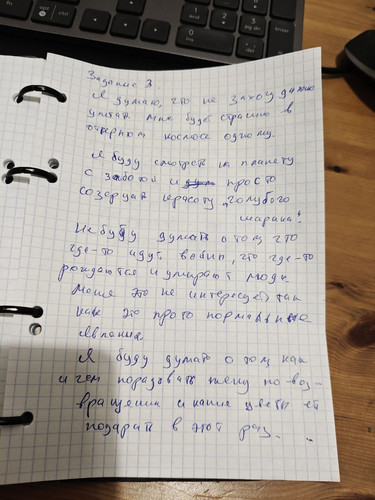 Задание 3
Я думаю, что не захочу даже
улетать мне буде страшно в
открытом космосе одному.
Я буду смотреть на планету
с заботой и просто
созерцать красоту „голубого
шарика“.
Не буду думать о том, что
где-то идут войны, что где-то
рождаются и умирают люди.
Меня это не интересует, так
как это просто нормальные
явления.
Я буду думать о том как
и чем порадовать жену по воз-
вращении и какие цветы ей
подарить в этот раз.